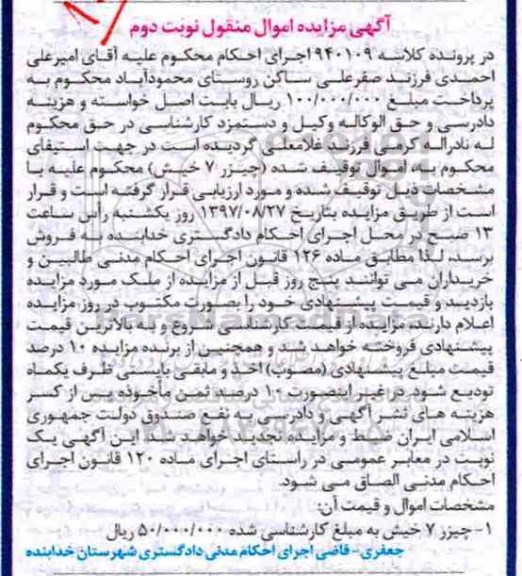 آگهی مزایده اموال منقول نوبت دوم
در پرونده کلاسه ۹۴۰۱۰۹اجرای احکام محکوم علیه آقای امیرعلی
احمدی فرزند صفرعلی ساکن روستای محمودآباد محکوم به
پرداخت مبلغ ۱۰۰/۰۰۰/۰۰۰ ریال بابت اصل خواسته و هزینه
دادرسی و حق الوکاله وکیل و دستمزد کارشناسی در حق محکوم
له نادراله کرمی فرزند غلامعلی گردیده است در جهت استیفای
محکوم به، اموال توقیف شده (چیزر ۷ خیش) محکوم علیه با
مشخصات ذیل توقیف شده و مورد ارزیابی قرار گرفته است و قرار
است از طریق مزایده بتاریخ ۱۳۹۷/۰۸/۲۷ روز یکشنبه رأس ساعت
۱۳ صبح در محل اجرای احکام دادگستری خدابنده به فروش
برسد، لذا مطابق ماده ۱۲۶ قانون اجرای احکام مدنی طالبین و
خریداران می توانند پنج روز قبل از مزایده از ملک مورد مزایده
بازدید و قیمت پیشنهادی خود را بصورت مکتوب در روز مزایده
اعلام دارند، مزایده از قیمت کارشناسی شروع و به بالاترین قیمت
پیشنهادی فروخته خواهد شد و همچنین از برنده مزایده ۱۰ درصد
قیمت مبلغ پیشنهادی (مصوب) اخذ و مابقی بایستی ظرف یکماه
تودیع شود، در غیر اینصورت ۱۰ درصد ثمن مأخوذه پس از کسر
هزینه های نشر آگهی و دادرسی به نفع صندوق دولت جمهوری
اسلامی ایران ضبط و مزایده تجدید خواهد شد این آگهی یک
نوبت در معابر عمومی در راستای اجرای ماده ۱۲۰ قانون اجرای
احکام مدنی الصاق می شود.
مشخصات اموال و قیمت آن:
۱- چیزر ۷ خیش به مبلغ کارشناسی شده ۵۰/۰۰۰/۰۰۰ ریال
جعفری- قاضی اجرای احکام مدنی دادگستری شهرستان خدابنده